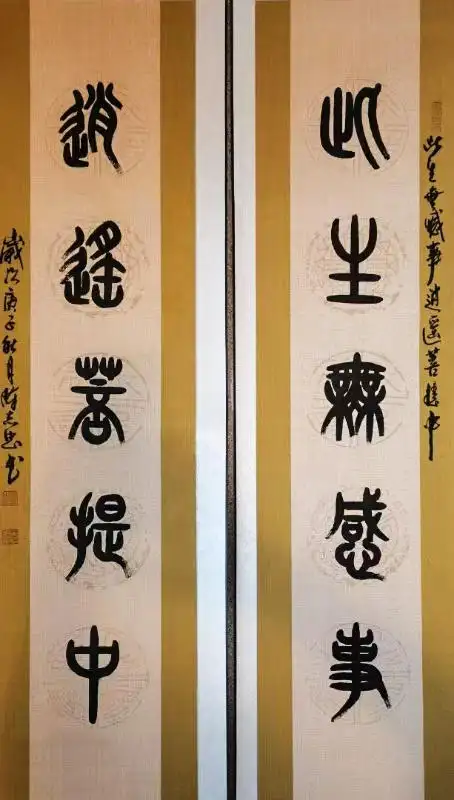 此生無憾事逍遥菩提中
此生無感事
逍遙菩提中
歲次庚子秋月陈志忠书